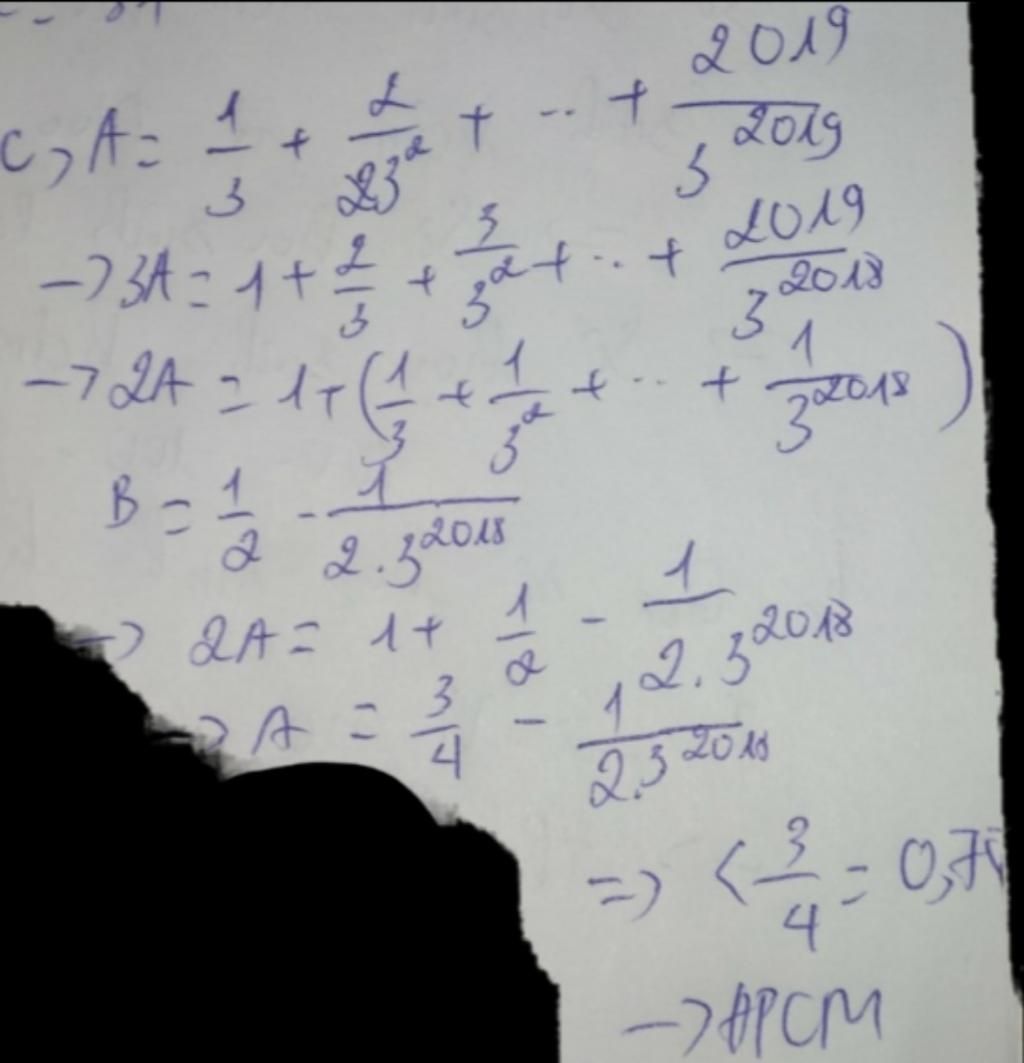 C, A = 1/3 + 2/3² + .. + 2019/3²⁰¹⁹
→ 3A = 1 + 2/3 + 3/3² + .. + 2019/3²⁰¹⁸
→ 2A = 1 + (1/3 + 1/3² + .. + 1/3²⁰¹⁸)
B = 1/2 - 1/2.3²⁰¹⁸
→ 2A = 1 + 1/2 - 1/2.3²⁰¹⁸
→ A = 3/4 - 1/2.3²⁰¹⁸
=> < 3/4 = 0,75
→ ĐPCM